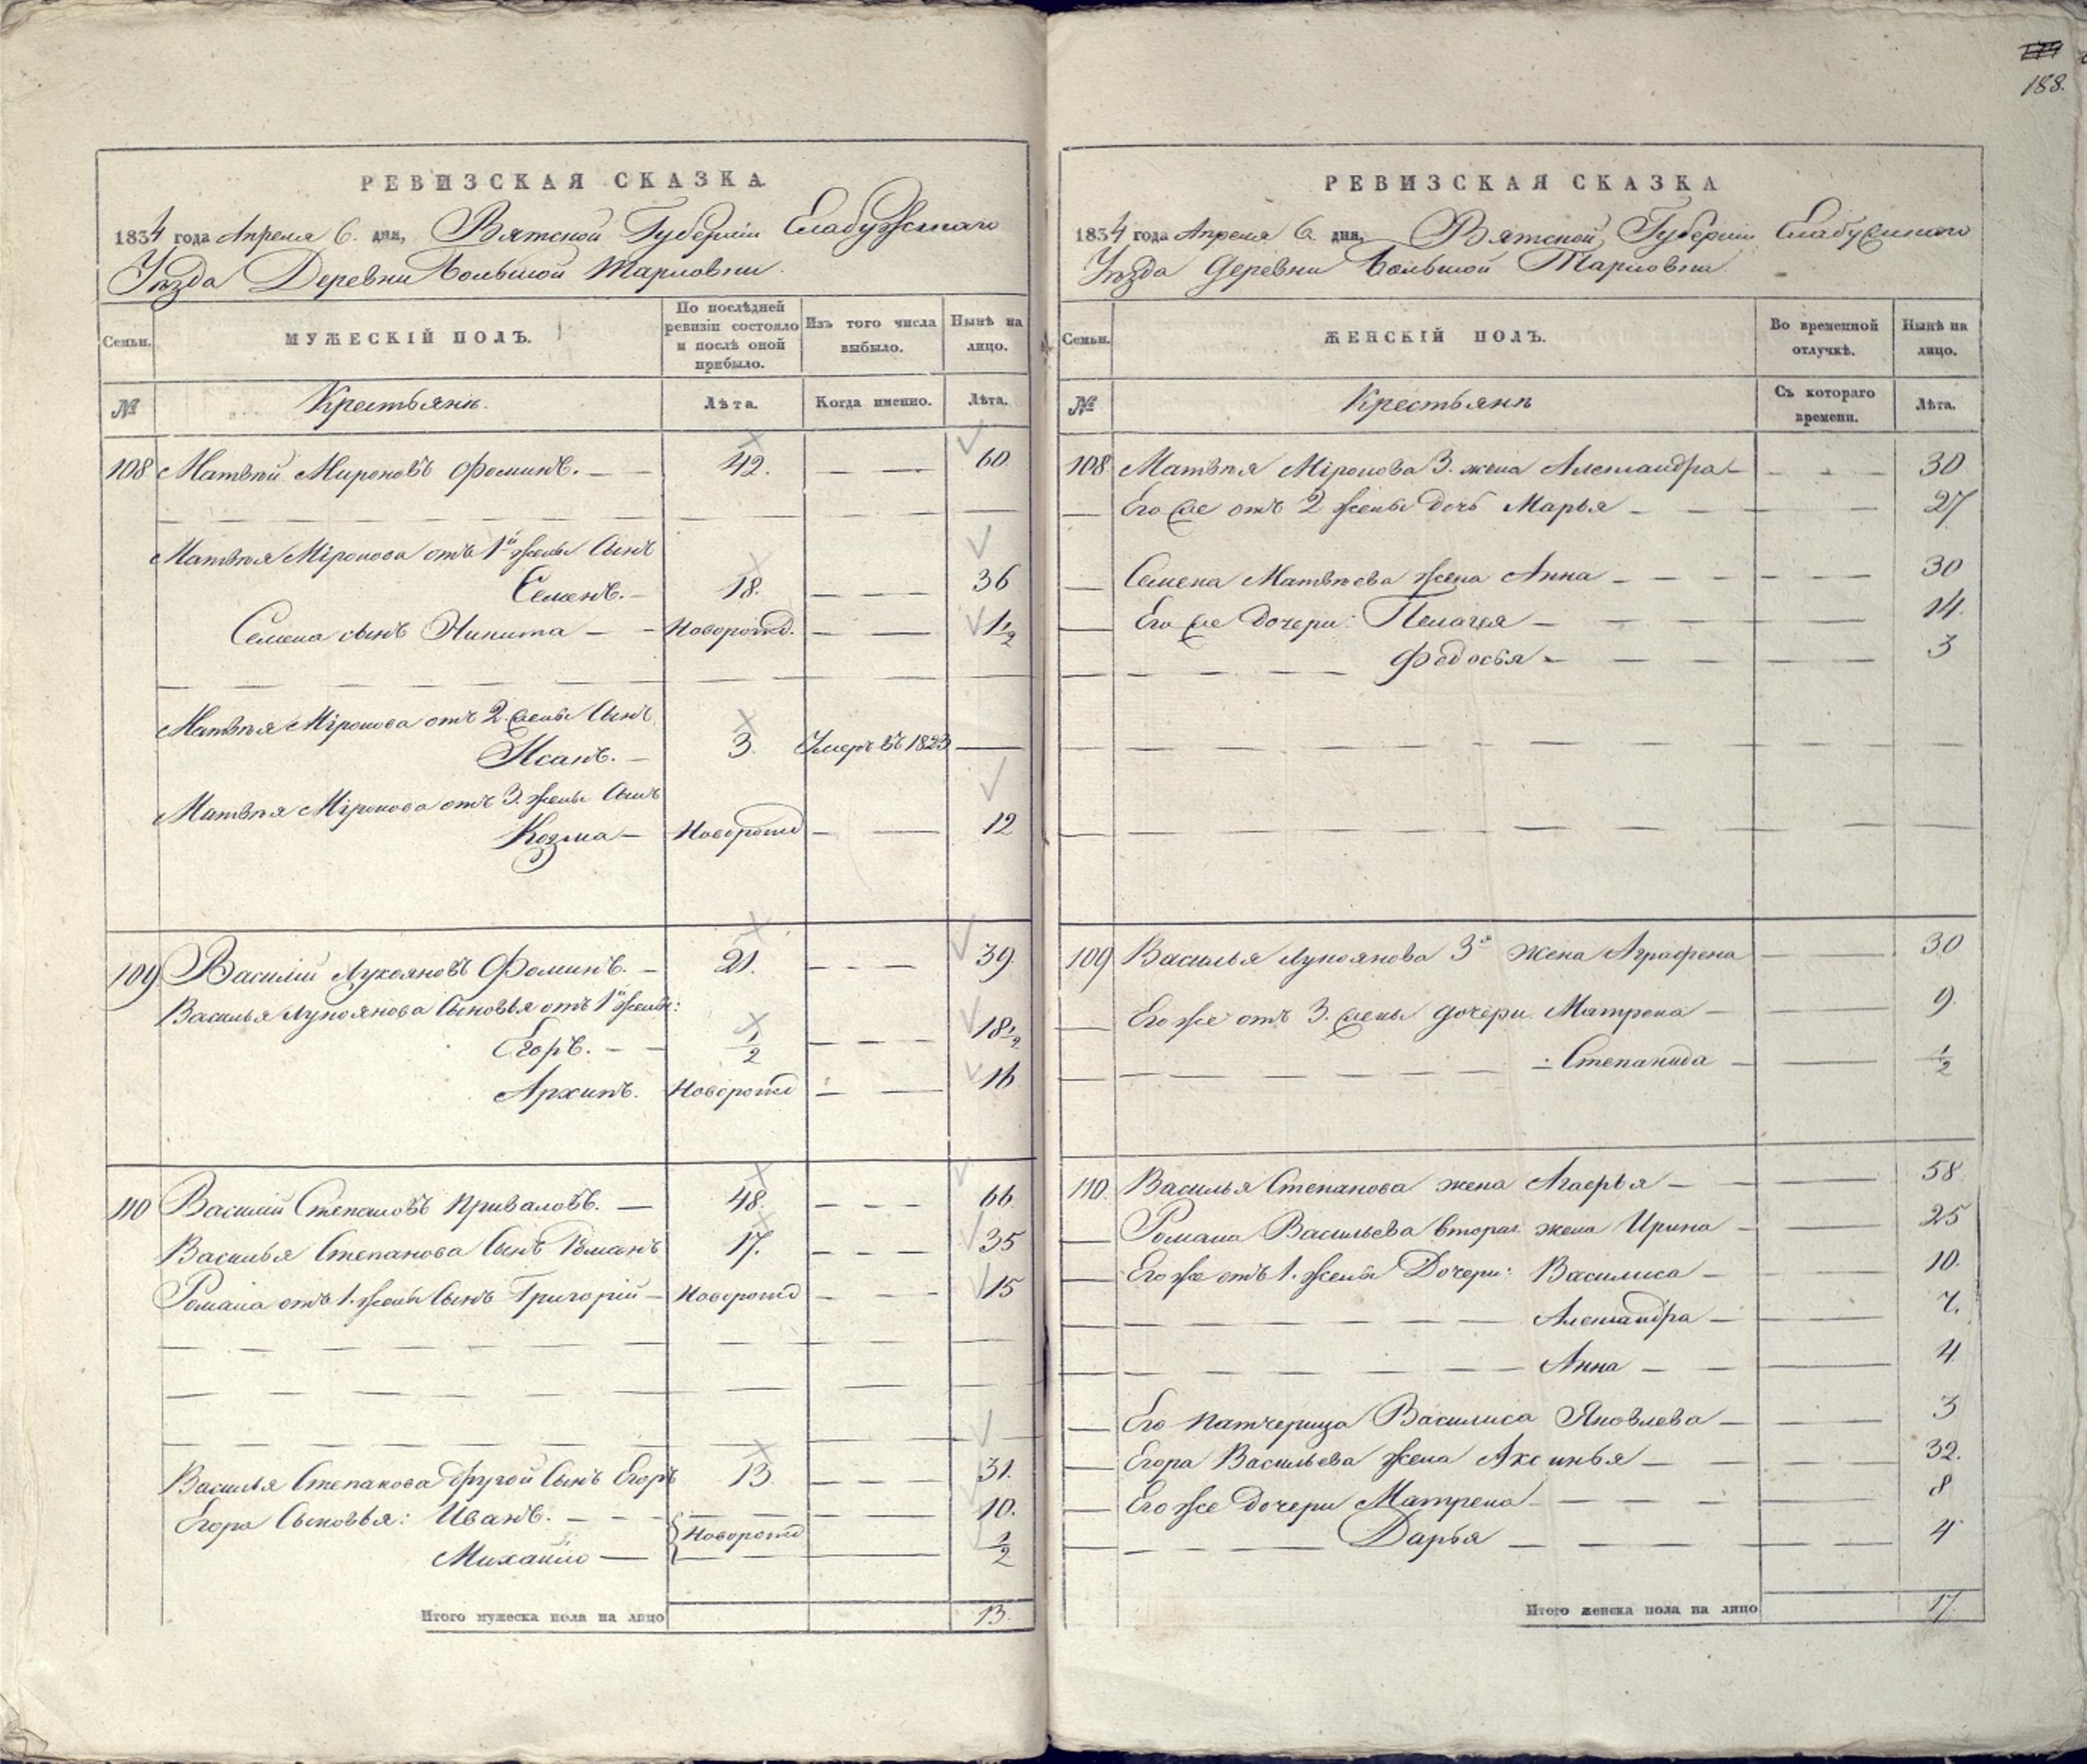 188.
РЕВИЗСКАЯ СКАЗКА
1834 года Апреля 6. дня, Вятской Губерніи Елабужскаго
Уѣзда Деревни Большой Тарловки.
Семьи.
МУЖЕСКІЙ ПОЛЪ.
По послѣдней ревизіи состояло и послѣ оной прибыло.
Изъ того числа выбыло.
Нынѣ на лицо.
№ Крестьянъ. Лѣта. Когда именно. Лѣта.
108 Матвѣй Мироновъ Фоминъ. 42. 60
Матвѣя Міронова отъ 1й жены Сынъ
Семенъ. 18. 36
Семена сынъ Никита Новорожд. 1 1/2
Матвѣя Міронова отъ 2. жены Сынъ
Исакъ. 3. Умеръ въ 1823
Матвѣя Міронова отъ 3. жены Сынъ
Козма Новорожд 12
109 Василій Лукояновъ Фоминъ. 21. 39
Василья Лукоянова Сыновья отъ 1й жены:
Егоръ. 1/2 18 1/2
Архипъ. Новорожд 16
110 Василій Степановъ Приваловъ. 48. 66
Василья Степанова Сынъ Романъ 17. 35
Романа отъ 1. жены Сынъ Григорій Новорожд 15
Василья Степанова другой Сынъ Егоръ 13. 31.
Егора Сыновья: Иванъ. 10.
Новорожд
Михайло 1/2
Итого мужеска пола на лицо 13.
РЕВИЗСКАЯ СКАЗКА
1834 года Апреля 6. дня, Вятской Губерніи Елабужскаго
Уѣзда Деревни Большой Тарловки
Семьи.
ЖЕНСКІЙ ПОЛЪ.
Во временной отлучкѣ.
Нынѣ на лицо.
№ Крестьянъ Съ котораго времени. Лѣта.
108 Матвѣя Міронова 3. жена Александра 30
Его же отъ 2 жены дочь Марья 27
Семена Матвѣева жена Анна 30
Его же Дочери: Пелагея 14.
Федосья 3
109 Василья Лукоянова 3я жена Аграфена 30
Его же отъ 3. жены дочери Матрена 9.
Степанида 1/2
110. Василья Степанова жена Агафья 58
Романа Васильева вторая жена Ирина 25
Его же отъ 1. жены Дочери: Василиса 10.
Александра 7.
Анна 4
Его патчерица Василиса Яковлева 3
Егора Васильева жена Аксинья 32.
Его же Дочери Матрена 8
Дарья 4
Итого женска пола на лицо 17.